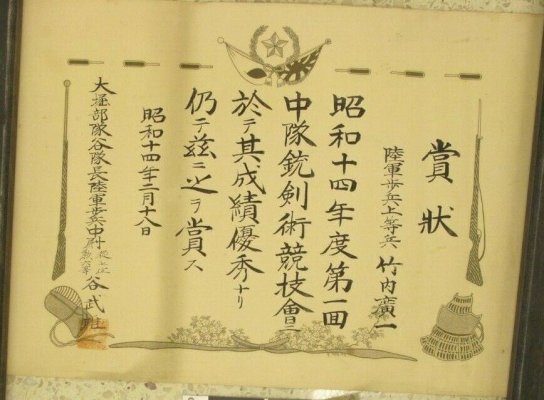 賞狀
陸軍歩兵上等兵 竹内廣一
昭和十四年度第一回
中隊銃剣術競技會ニ
於テ其成績優秀ナリ
仍テ茲ニ之ヲ賞ス
昭和十四年二月十八日
大堀部隊谷隊長陸軍歩兵中尉 谷武